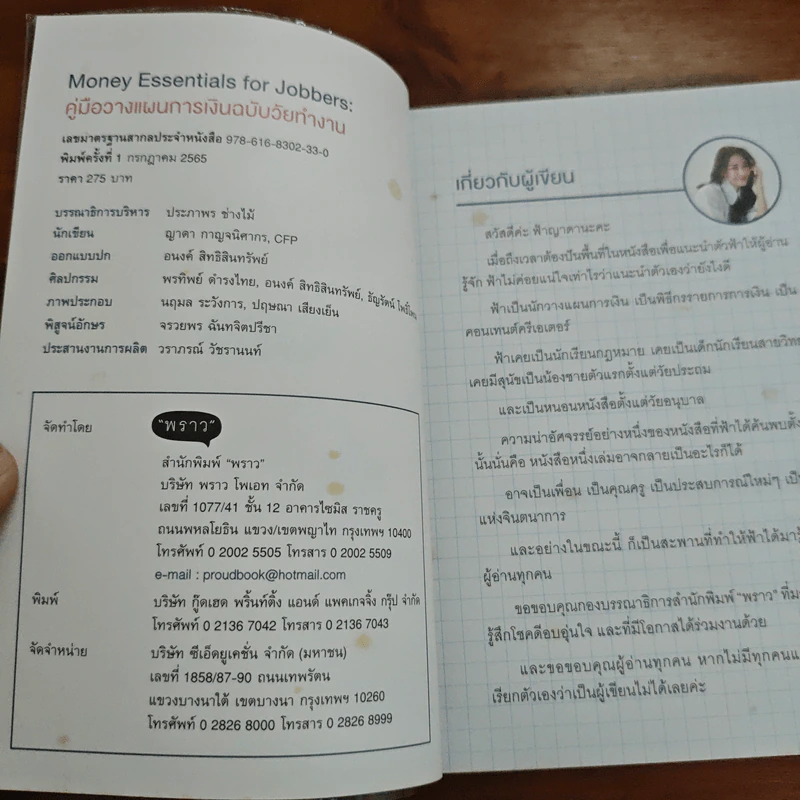 Money Essentials for Jobbers:
คู่มือวางแผนการเงินฉบับวัยทำงาน
เลขมาตรฐานสากลประจำหนังสือ 978-616-8302-33-0
พิมพ์ครั้งที่ 1 กรกฎาคม 2565
ราคา 275 บาท
บรรณาธิการบริหาร ประภาพร ช่างไม้
นักเขียน ญาดา กาญจนิศากร, CFP
ออกแบบปก อนงค์ สิทธิสินทรัพย์
ศิลปกรรม พรทิพย์ ดำรงไทย, อนงค์ สิทธิสินทรัพย์, ธัญรัตน์
ภาพประกอบ นฤมล ระวังการ, ปฤษณา เสียงเย็น
พิสูจน์อักษร จรวยพร ฉันทจิตปรีชา
ประสานงานการผลิต วราภรณ์ วัชรานนท์
จัดทำโดย "พราว"
สำนักพิมพ์ "พราว"
บริษัท พราว โพเอท จำกัด
เลขที่ 1077/41 ชั้น 12 อาคารไซมิส ราชครู
ถนนพหลโยธิน แขวง/เขตพญาไท กรุงเทพฯ 10400
โทรศัพท์ 0 2002 5505 โทรสาร 0 2002 5509
e-mail : proudbook@hotmail.com
พิมพ์ บริษัท กู๊ดเฮด พริ้นท์ติ้ง แอนด์ แพคเกจจิ้ง กรุ๊ป จำกัด
โทรศัพท์ 0 2136 7042 โทรสาร 0 2136 7043
จัดจำหน่าย บริษัท ซีเอ็ดยูเคชั่น จำกัด (มหาชน)
เลขที่ 1858/87-90 ถนนเทพรัตน
แขวงบางนาใต้ เขตบางนา กรุงเทพฯ 10260
โทรศัพท์ 0 2826 8000 โทรสาร 0 2826 8999
เกี่ยวกับผู้เขียน
สวัสดีค่ะ ฟ้าญาดานะคะ
เมื่อถึงเวลาต้องปันพื้นที่ในหนังสือเพื่อแนะนำตัวฟ้าให้ผู้อ่าน
รู้จัก ฟ้าไม่ค่อยแน่ใจเท่าไรว่าแนะนำตัวเองว่ายังไงดี
ฟ้าเป็นนักวางแผนการเงิน เป็นพิธีกรรายการการเงิน เป็น
คอนเทนต์ครีเอเตอร์
ฟ้าเคยเป็นนักเรียนกฎหมาย เคยเป็นเด็กนักเรียนสายวิทย
เคยมีสุนัขเป็นน้องชายตัวแรกตั้งแต่วัยประถม
และเป็นหนอนหนังสือตั้งแต่วัยอนุบาล
ความน่าอัศจรรย์อย่างหนึ่งของหนังสือที่ฟ้าได้ค้นพบตั้ง
นั้นนั่นคือ หนังสือหนึ่งเล่มอาจกลายเป็นอะไรก็ได้
อาจเป็นเพื่อน เป็นคุณครู เป็นประสบการณ์ใหม่ๆ เป็
แห่งจินตนาการ
และอย่างในขณะนี้ ก็เป็นสะพานที่ทำให้ฟ้าได้มารู้
ผู้อ่านทุกคน
ขอขอบคุณกองบรรณาธิการสำนักพิมพ์ "พราว" ที่
รู้สึกโชคดีอบอุ่นใจ และที่มีโอกาสได้ร่วมงานด้วย
และขอขอบคุณผู้อ่านทุกคน หากไม่มีทุกคน
เรียกตัวเองว่าเป็นผู้เขียนไม่ได้เลยค่ะ